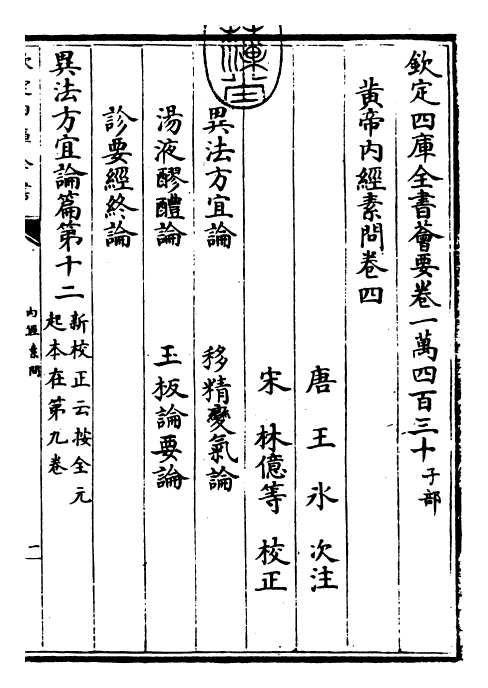 欽定四庫全書薈要卷一萬四百三十子部
黃帝內經素問卷四
唐王氷次注
宋林億等校正
異法方宜論 移精變氣論
湯液醪醴論 玉板論要論
診要經終論
異法方宜論篇第十二新校正云按全元
起本在第九卷
內經素問
一